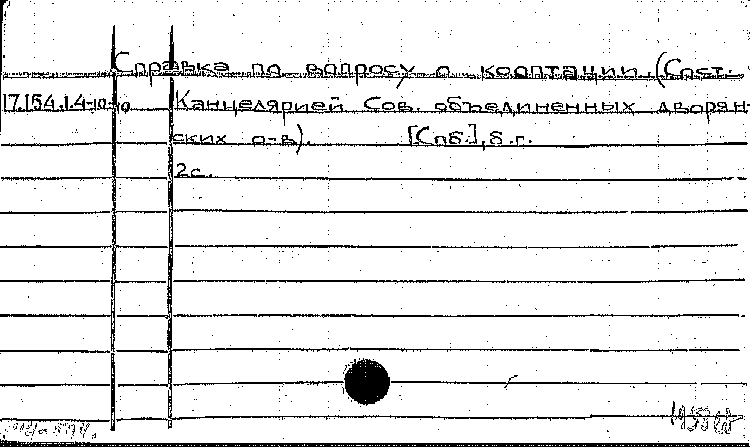 Справка по вопросу о кооптации. (Сост.
17.154.1.4 Канцелярией Сов. объединенных дворян-
ских о-в). [Спб.], б.г.
2с.